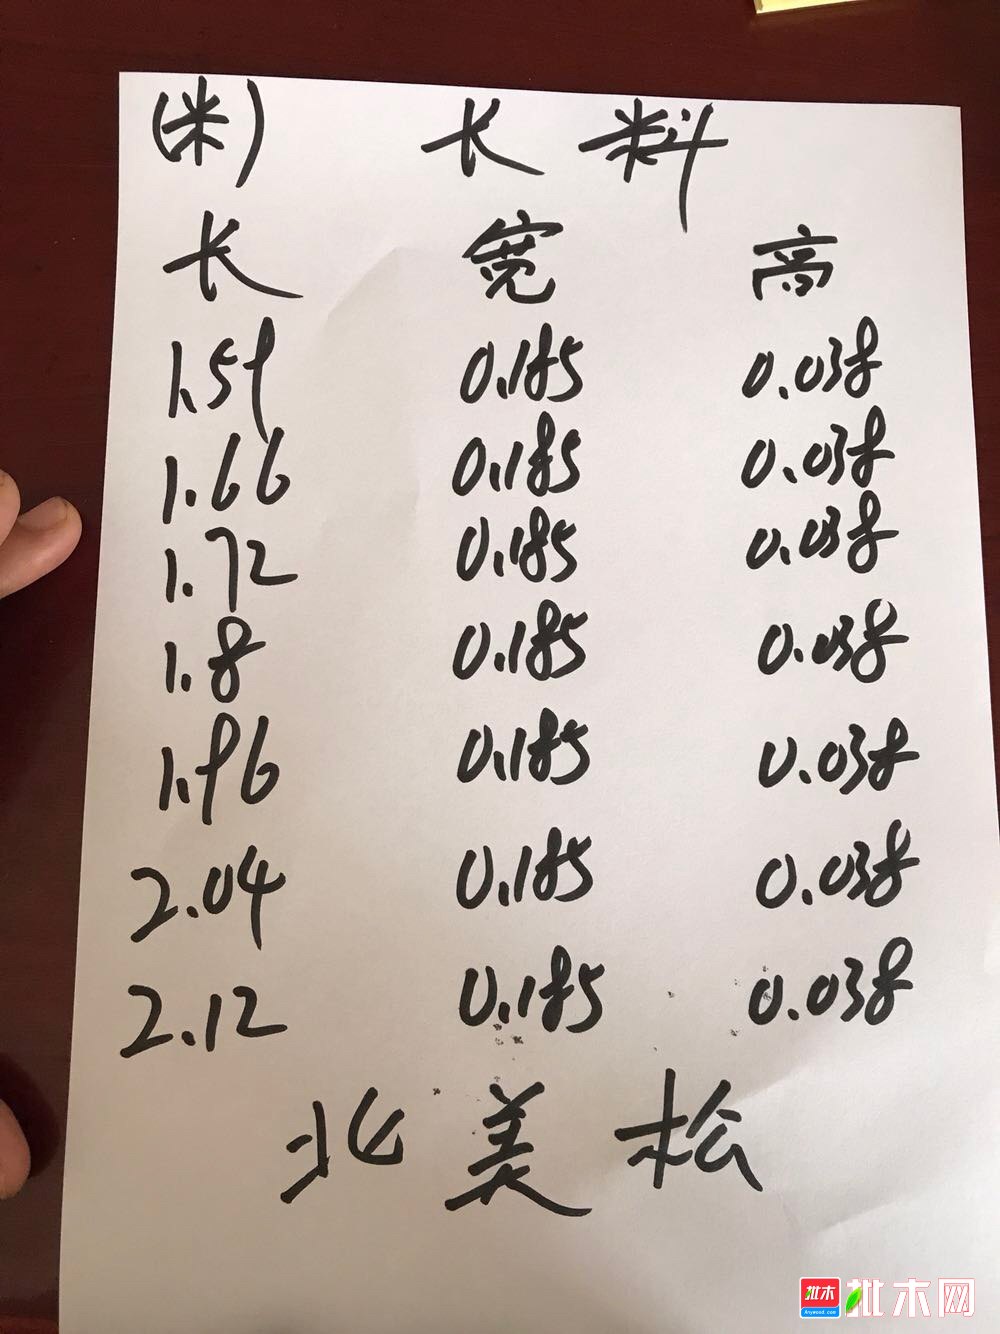 (米) 长料
长 宽 高
1.59 0.185 0.038
1.66 0.185 0.038
1.72 0.185 0.038
1.8 0.185 0.038
1.96 0.185 0.038
2.04 0.185 0.038
2.12 0.185 0.038
北美松
批木 批木网
Anywood.com